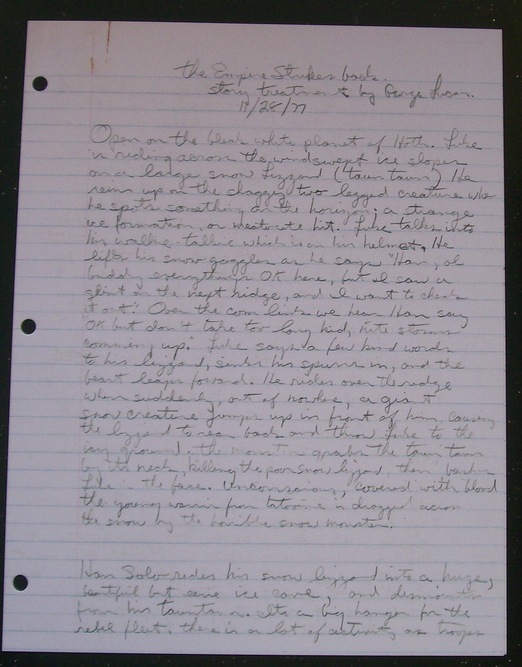 the Empire Strikes back.
story treatment by George Lucas.
11/28/77
Open on the bleak white planet of Hoth. Luke
is riding across the windswept ice slopes
on a large snow lizzard (taun taun) He
reins up on the shaggy two legged creature when
he spots something on the horizon; a strange
ice formation, or meteorite hit. Luke talks into
his walkie-talkie which is in his helmet. He
lifts his snow goggles as he says "Han, ol
buddy, everything's OK here, but I saw a
glint on the next ridge, and I want to check
it out." Over the com link we hear Han say
OK but don't take too long kid, nite storms
comming up." Luke says a few kind words
to his lizzard, sinks his spurrs in, and the
beast leaps foward. He rides over the ridge
when suddenly, out of nowhere, a giant
snow creature jumps up in front of him, causing
the lizzard to rear back and throw Luke to the
icy ground. the monster grabs the taun taun
by its neck, killing the poor snow lizzard, then bashes
Luke in the face. Unconscious, covered with blood
the young warrior from tatooine is dragged across
the snow by the horrible snow monster.
Han Solo rides his snow lizzard into a huge,
beatiful but eerie ice cave, and dismounts
from his tauntaun. Its a big hanger for the
rebel fleet. there is a lot of activity as troops